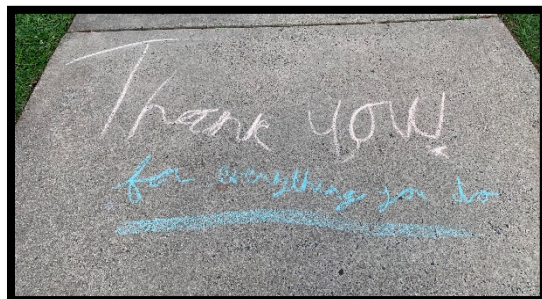 Thank you!
for everything you do